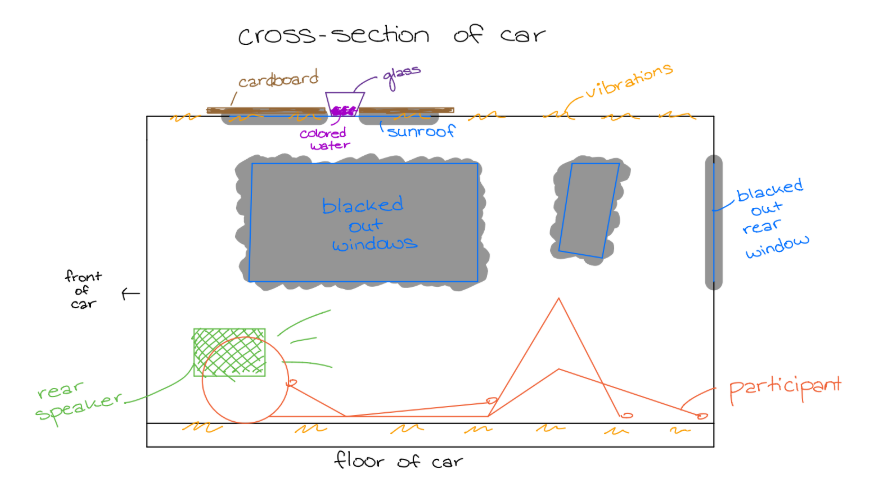 cross-section of car
cardboard
glass
vibrations
colored
water
sunroof
blacked
out
windows
blacked
out
rear
window
front
of
car
rear
speaker
participant
floor of car